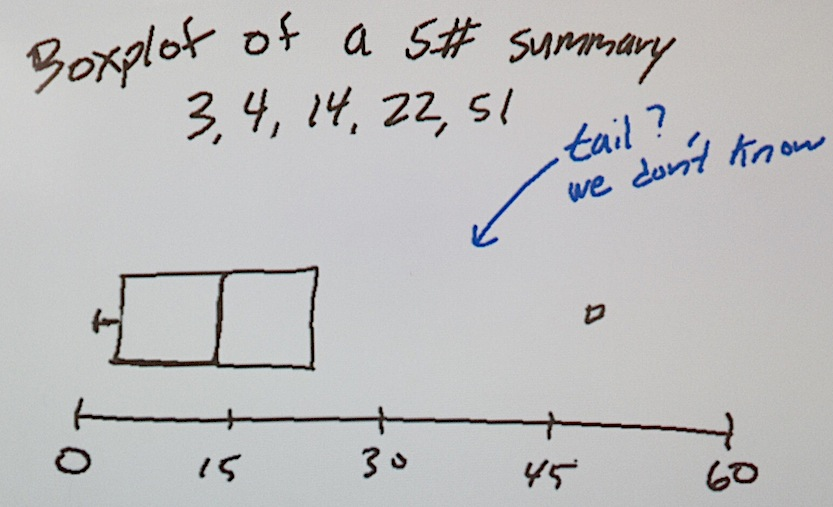 Boxplot of a 5# summary
3, 4, 14, 22, 51
tail?
we don't know
0 15 30 45 60